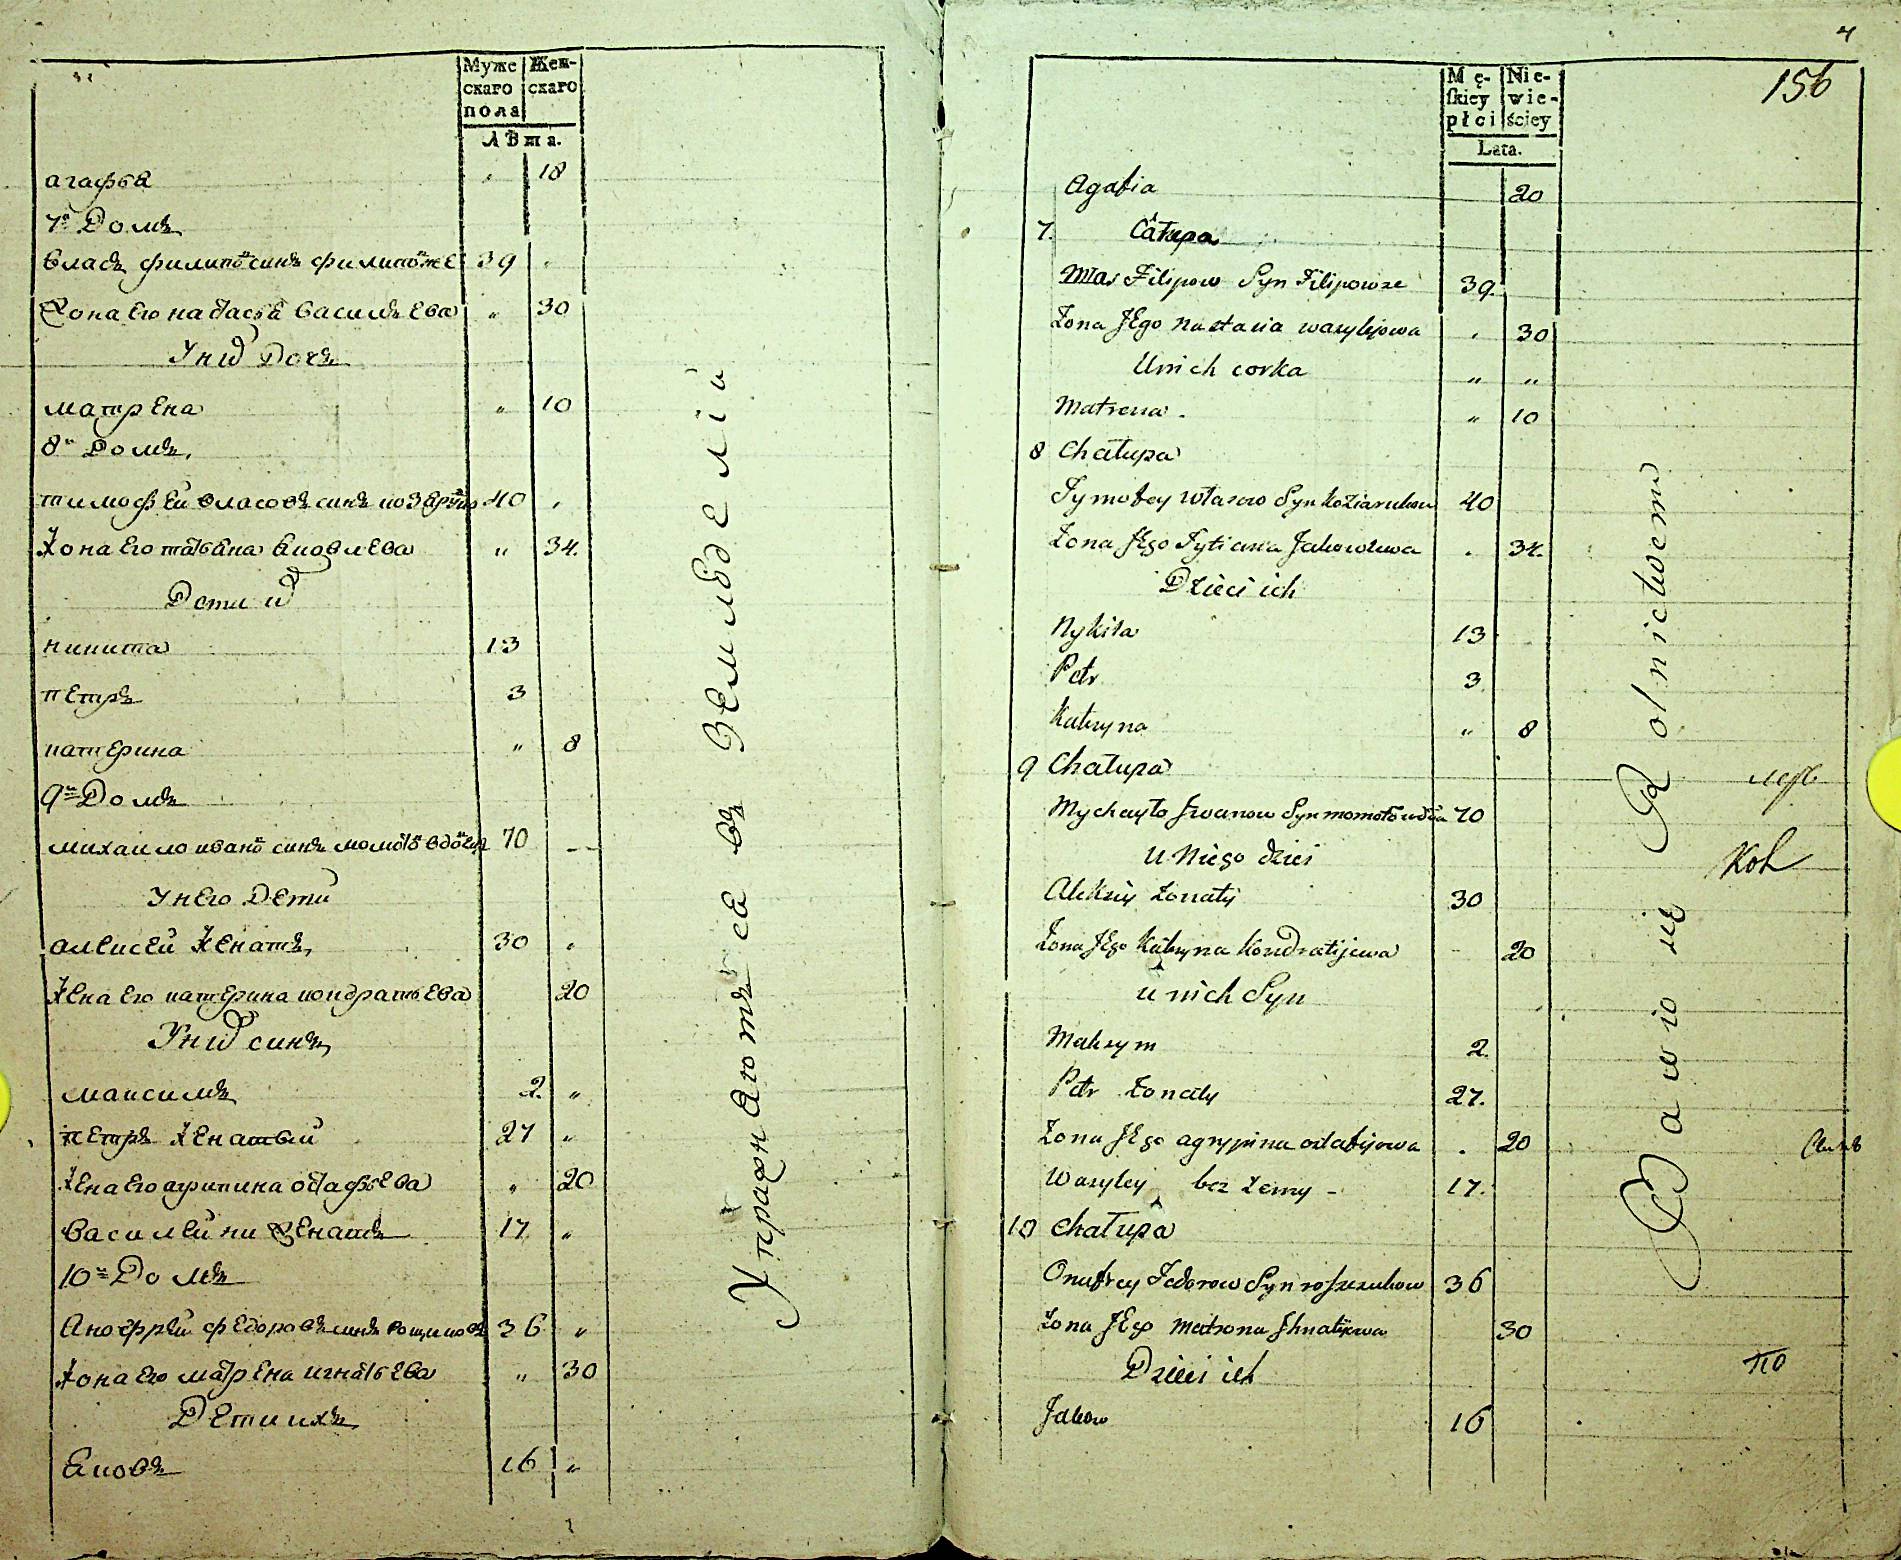 Муже Жен-
скаго скаго
пола
Лѣта.
агафья 18
7й Домъ
власъ филипов синъ филипов же 39
Жона его настасья василъева 30
У них Дочъ
матрена 10
8й Домъ
тимофей власовъ синъ 40
Жона его татьяна яковлева 34.
Дети их
никита 13
петръ 3
катерина 8
9й Домъ
михаило иванов синъ 70
У него Дети
алексей Женатъ 30
Жена его катерина кондратьева 20
У них синъ
максимъ 2.
петръ Женатый 27
Жена его агрипина остафьева 20
василей ни Женатъ 17
10й Домъ
Анофрей федоровъ синъ рощиковъ 36
Жона его матрена игнатьева 30
Дети ихъ
Яковъ 16
Упражняютъся въ земледелии
4
156
Mę- Nie-
skiey wie-
płci ściey
Lata.
Agafia 20
7. Całupa
Włas Filipow Syn Filipow ze 39.
Żona JEgo Nastasia wasylijowa 30
U nich corka
Matrena 10
8 Chałupa
Tymofey Własow Syn 40
Żona JEgo Tytiana Jakowlewa 34.
Dzieci ich
Nykita 13
Petr 3
Katryna 8
9 Chałupa
Mychayło Iwanow Syn 70
U Niego dzieci
Alekziy Żonaty 30
Żona JEgo Katryna Kondratijewa 20
u nich Syn
Maksym 2.
Petr Żonaty 27.
Żona JEgo agrypina ostafijowa 20
Wasyley bez żenny 17.
10 Chałupa
Onufrey Fedorow Syn roszczukow 36
Żona JEgo Matrona Ihnatijewa 30
Dzieci ich
Jakow 16
Bawio się Rolnictwem